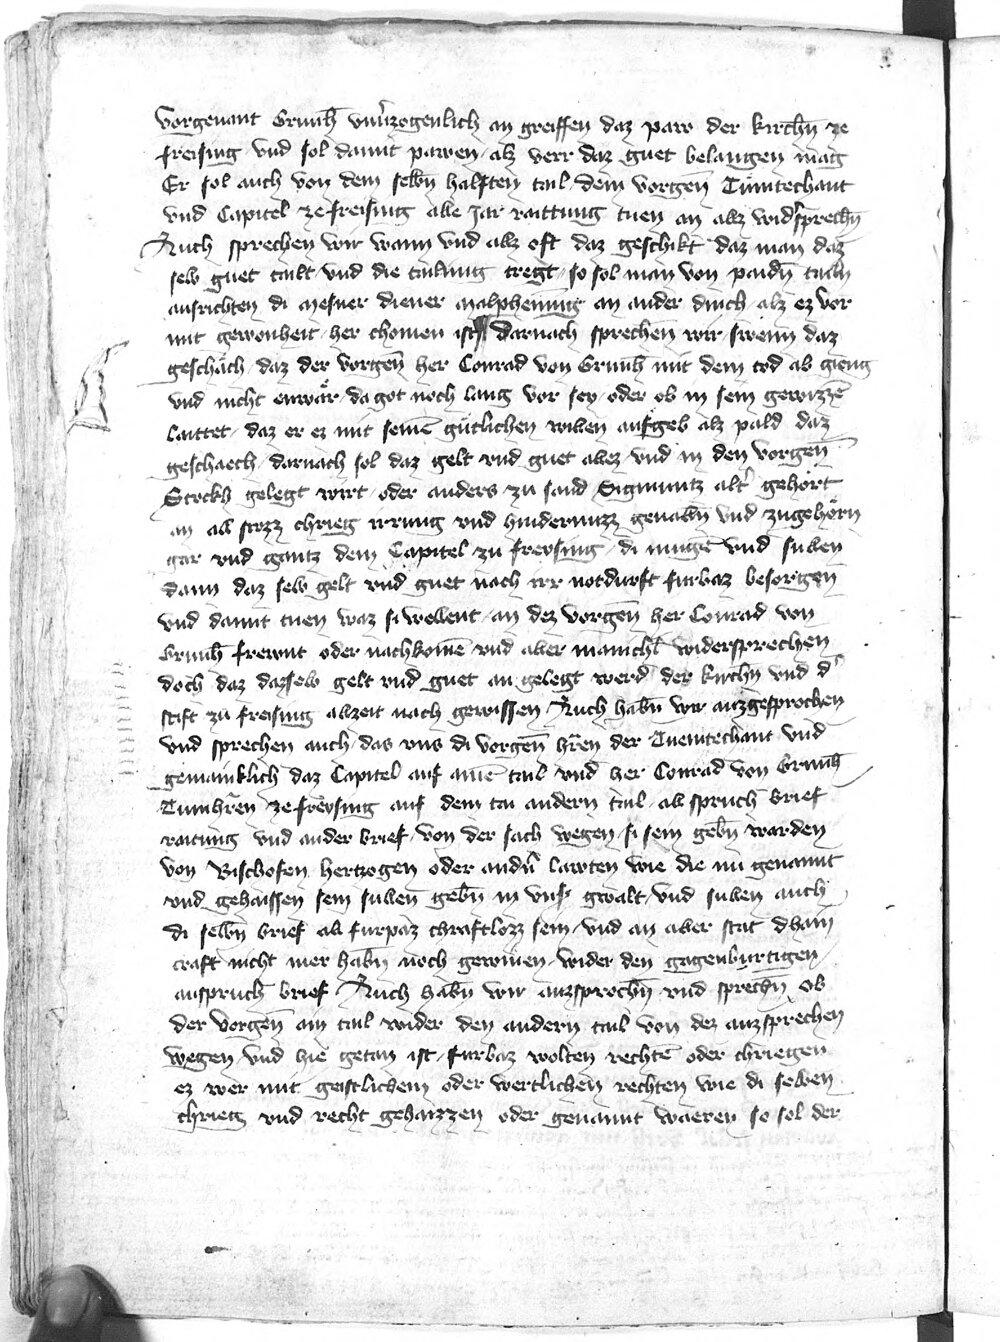 vorgenant Grinh̄ vnuͤzogenlich an greiffen daz paw der kirchn̄ ze
freising vnd sol damit pawen alz verr daz guet belangen mag
Er sol auch von dem selbn̄ halften tail dem vorgen̄ Tuͤmtechant
vnd Capitel ze freising alle Jar raittung tuen an allz widˢsprechn̄
Auch sprechen wir wann vnd allz oft daz geschikt daz man daz
selb guet tailt vnd die tailung tregt so sol man von paidn̄ tailn
ausrichten di mesner diener an ander dinch alz ez vor
mit gewonheit her chomen ist Darnach sprechen wir swenn daz
geschaͤch daz der vorgen̄ her Conrad von Grinh̄ mit dem tod ab gieng
vnd nicht enwaͤr da got noch lang vor sey oder ob in sein gewizzē
laittet daz er ez mit seinē guͤtlichen willen aufgeb alz pald daz
geschaech darnach sol daz gelt vnd guet allez vnd in den vorgen̄
Stokh gelegt wirt oder anders zu sand Sigmuntz altˢ gehoͤrt
an all stozz chrieg irrung vnd hindernuzz genalln̄ vnd zugehoͤrn
gar vnd gantz dem Capitel zu freysing di mugē vnd sullen
dann daz selb gelt vnd guet nach irr notdurft furbaz besorigen
vnd damit tuen waz si wellent an dez vorgen̄ her Conrad von
Grinh̄ frewnt oder nachkomē vnd aller manichl̄ widersprechen
doch daz dazselb gelt vnd guet an gelegt werd der kirchn̄ vnd dˢ
stift zu freising allzeit nach gewissen Auch habn̄ wir auzgesprochen
vnd sprechen auch das vns di vorgen̄ hr̄en der Tuemtechant vnd
gemainklich daz Capitel auf ainē tail vnd her Conrad von Grinh̄
Tumhr̄en ze freysing auf dem andern tail all spruch brief
raitung vnd ander brief von der sach wegen si sein gebn̄ warden
von Bischofen hertzogen oder andˢn lawten wie die nu genannt
vnd gehaissen sein sullen̄ gebn̄ in vnsˢ gwalt vnd sullen auch
di selbn̄ brief all furpaz chraftlozz sein vnd an aller stat dhain
craft nicht mer habn̄ noch gewinen wider den gagenburtigen
auspruch brief Auch habn̄ wir auzsprochn̄ vnd sprechn̄ ob
der vorgen̄ ain tail wider den andern tail von dez auzsprechen
wegen vnd hie getan ist furbaz wolten rechtē oder chriegen
ez wer mit geistlichem oder wertlichen rechten wie di selben
chrieg vnd recht gehaizzen oder genannt waeren so sol der